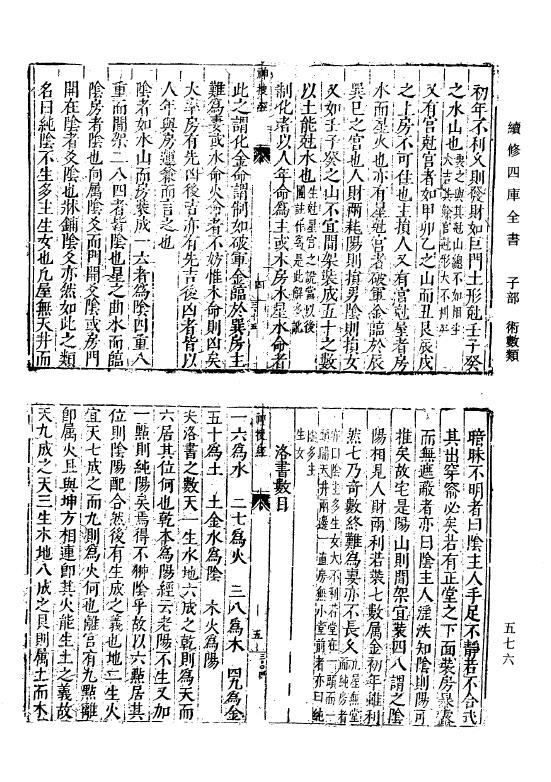 續修四庫全書　子部　術數類
初年不利久則發財如巨門土形尅壬子癸
之水山也
又有宫尅宫者如甲卯乙之山而丑艮辰戌
之上房不可住也主損人又有宫尅星者房
水而星火也亦有星尅宫者破軍金臨於辰
巽巳之宫也人財兩耗陽則損男陰則損女
又如壬子癸之山不宜間架裝成五十之數
以土能尅水也
制化者以人年命為主或木房木星水命者
此之謂化金命謂制如破軍金臨於巽房主
難為妻或水命火命者不妨惟木命則凶矣
大率房有先凶後吉亦有先吉後凶者皆以
人年與房運兼而言之也
陰者如水山而房裝成一六者為陰四重八
重而間架二八四者皆陰也星之曲水而臨
陰房者陰也向屬陰爻而門開爻陰或房門
開在陰者爻陰也牀鋪陰爻亦然如此之類
名曰純陰不生多主生女也凡屋無天井而
神搜經
四
暗昧不明者曰陰主人手足不靜若不合式
其出穿窬必矣若有正堂之下面裝房暴露
而無應蔽者亦曰陰主人淫泆知陰則陽可
推矣故宅是陽山則間架宜裝四八謂之陰
陽相見人財兩利若裝七數属金初年雖利
然七乃奇數終難為妻亦不長久
生女
洛書數目
一六為水　二七為火　三八為木　四九為金
五十為土　土金水為陰　木火為陽
夫洛書之數天一生水地六成之乾則為天而
六居其位何也乾本為陽經云老陽不生又加
一㸃則純陽矣焉得不獅陰乎故以六㸃居其
位則陰陽配合然後有生成之義也地二生火
宜天七成之而九則為火何也離宫有九㸃離
即属火且與坤方相連即其火能生土之義故
天九成之天三生木地八成之艮則属土而木
神搜經
五
五七六